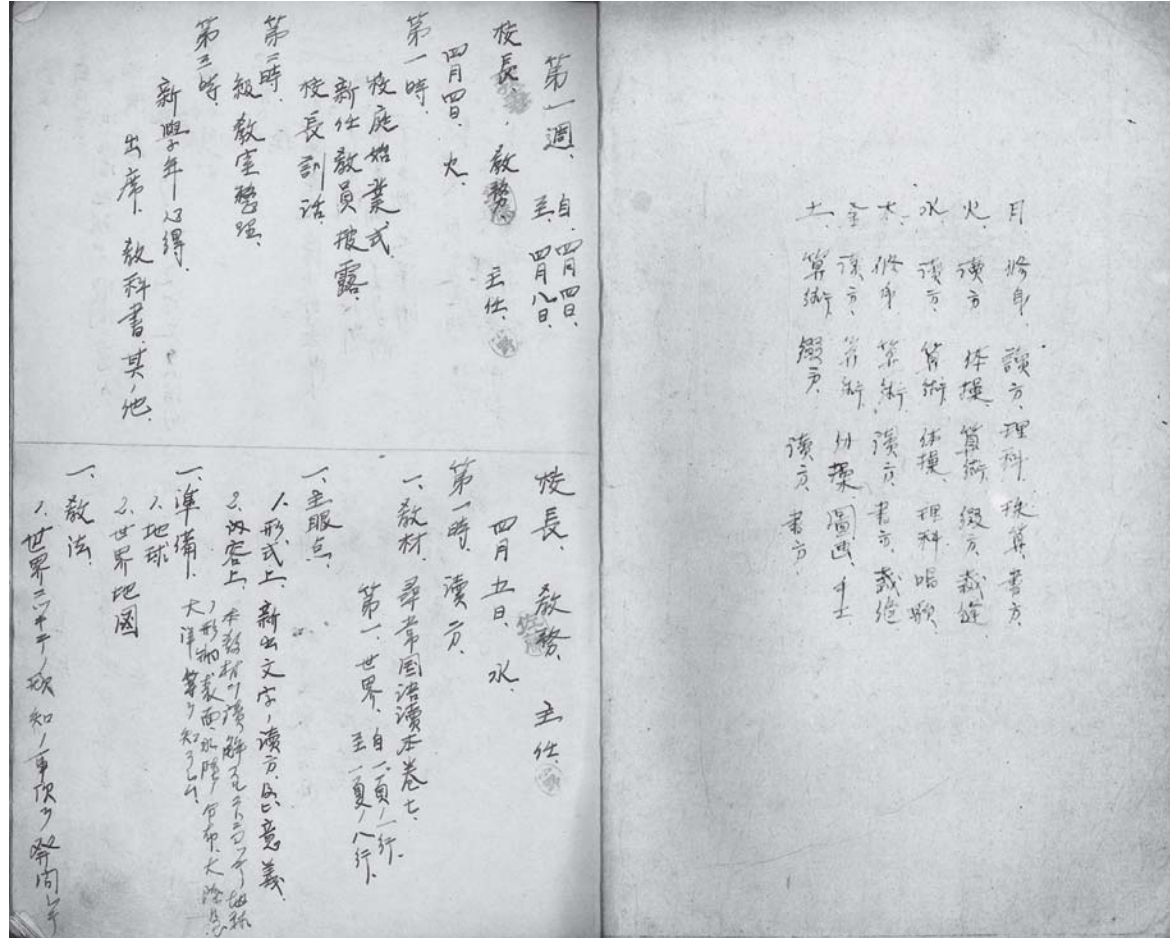 月、修身、讀方、理科、珠算、書方、
火、讀方、体操、算術、綴方、裁縫
水、讀方、算術、体操、理科、唱歌、
木、修身、算術、讀方、書方、裁縫
金、讀方、算術、体操、圖画、手工
土、算術、綴方、讀方、書方、
第一週、自、四月四日、
至、四月八日、
校長、教務、主任、
四月四日、火、
第一時、
校庭始業式、
新任教員披露、
校長訓話、
第二時、
級教室整理、
第三時、
新學年心得、
出席、教科書、其ノ他
校長、教務、主任、
四月五日、水、
第一時、讀方、
一、教材、尋常国語讀本巻七、
第一、世界、自一頁ノ一行、
至二頁ノ八行、
一、主眼点、
1、形式上、新出文字ノ讀方及ビ意義、
2、内容上、本教材ヲ讀解
ノ形狀表面水陸ノ分布、大陸及
大洋等ヲ知ラシム
一、準備、
1、地球
2、世界地図
一、教法、
1、世界ニツキテノ既知ノ事項ヲ発問シテ